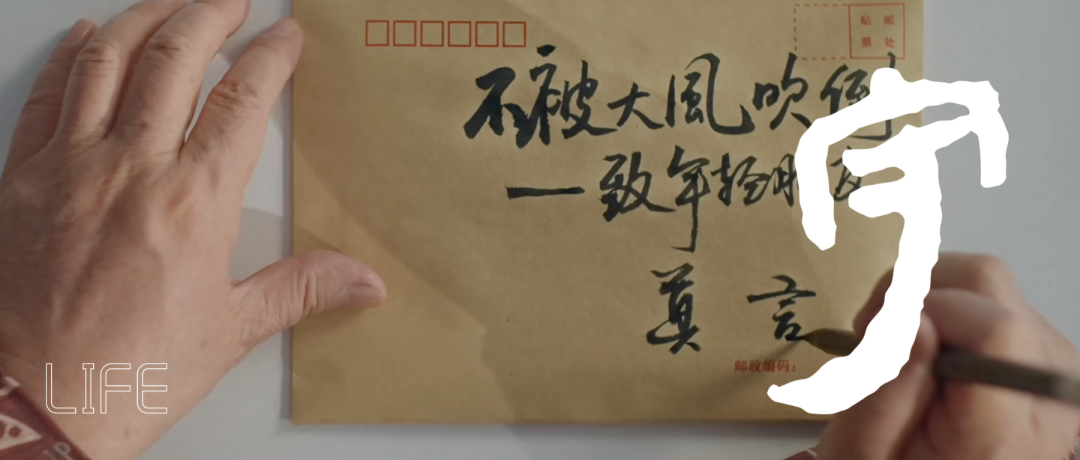 贴 邮
票 处
不被大風吹倒
一致年轻朋友
莫言
邮政编码：
LIFE